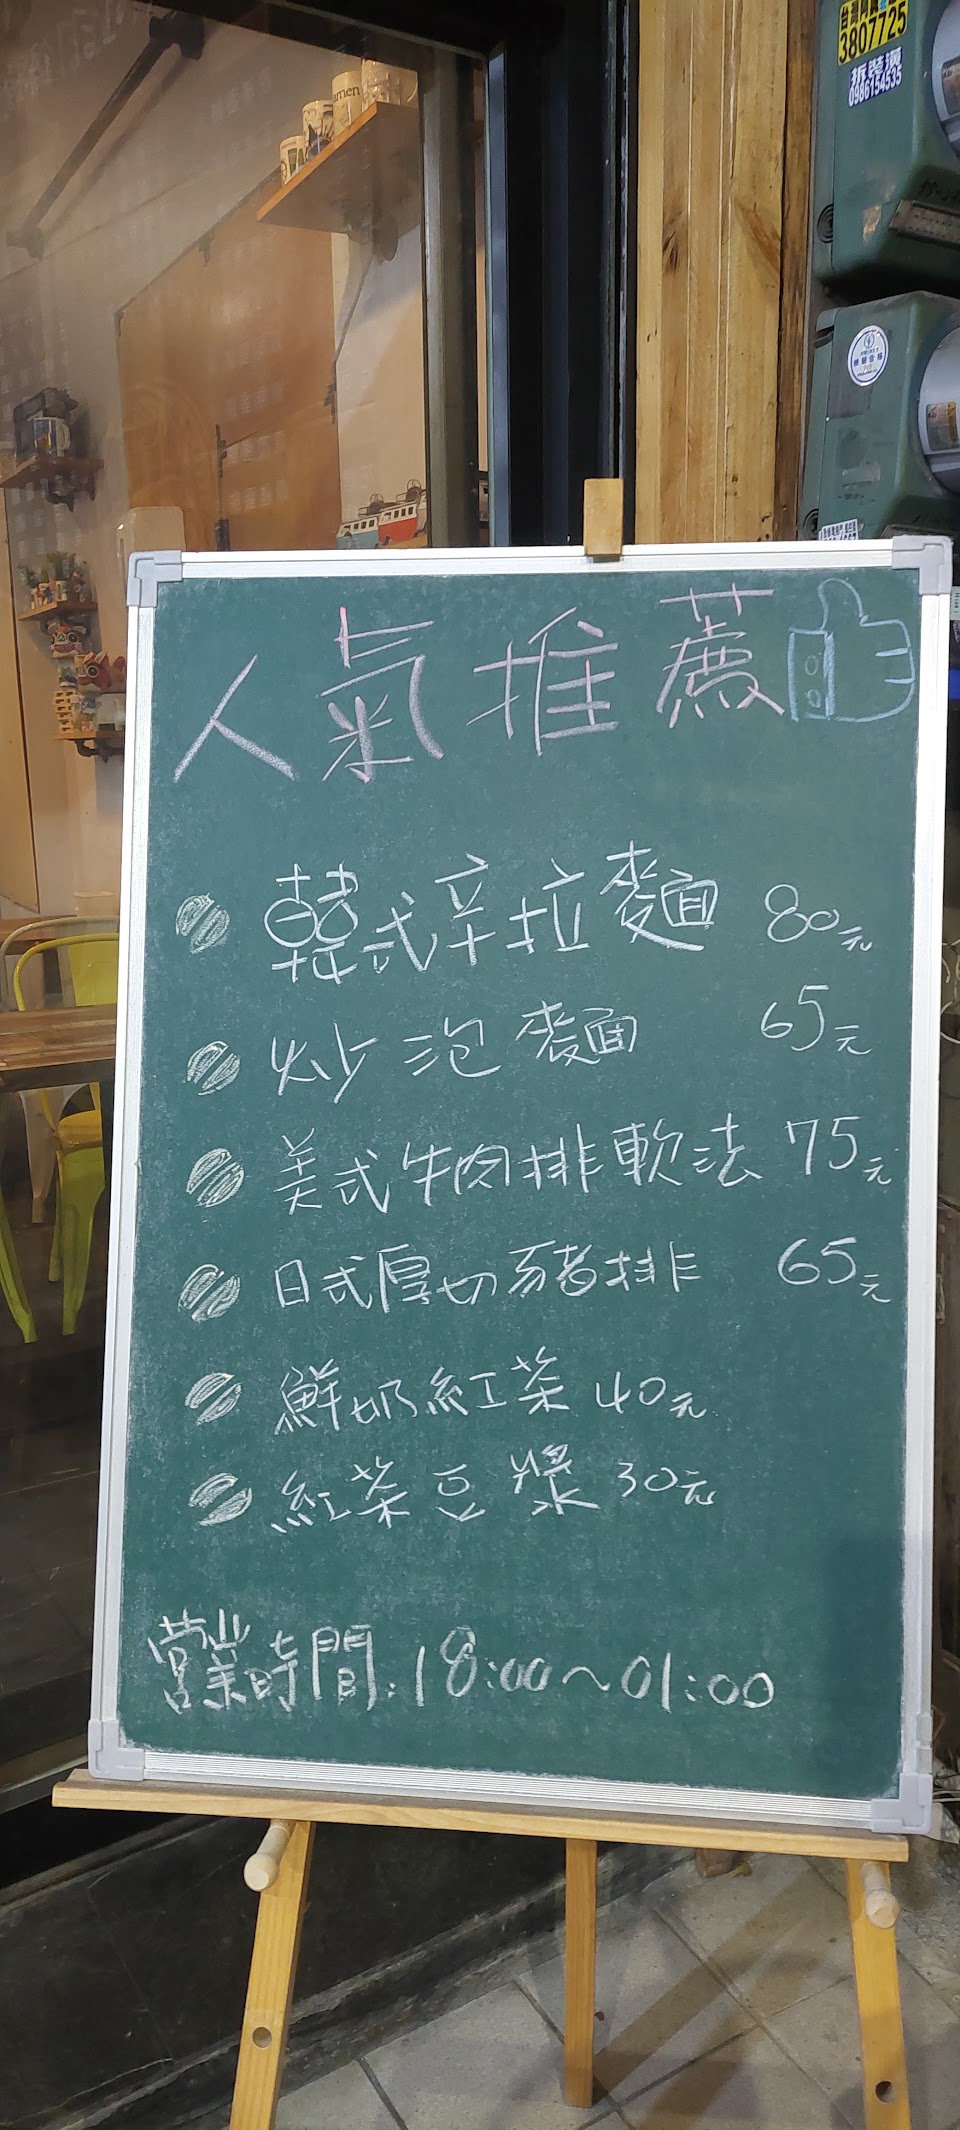 men
3807725
拆裝清
0986154535
人氣推薦
韓式辛拉麵 80元
炒泡麵 65元
美式牛肉排軟法 75元
日式厚切豬排 65元
鮮奶紅茶 40元
紅茶豆漿 30元
營業時間:18:00~01:00